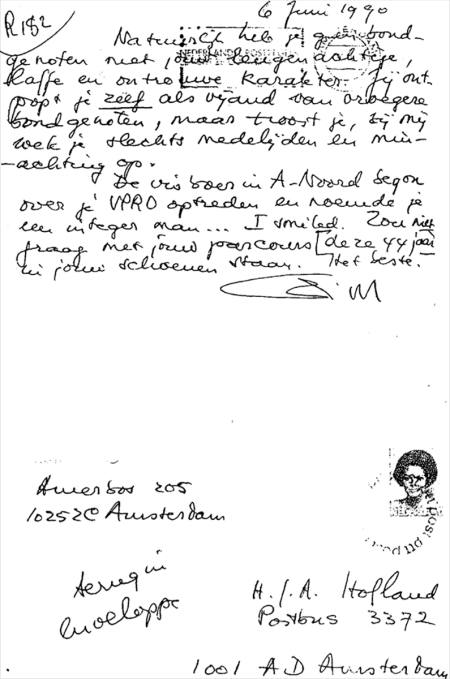 R182
6 Juni 1990
Natuurlijk heb je geen bond-
genoten met jouw leugenachtige,
laffe en ontrouwe karakter. Jij ont-
popt je zelf als vijand van vroegere
bondgenoten, maar troost je, bij mij
wek je slechts medelijden en min-
achting op.
De visboer in A-Noord begon
over je VPRO optreden en noemde je
een integer man... I smiled. Zou niet
graag met jouw parcours [deze 44 jaar
in jouw schoenen staan. Het beste.
NEDERLAND
Amerbos 205
1025ZC Amsterdam
terug in
enveloppe
H.J.A. Hofland
Postbus 3372
1001 AD Amsterdam